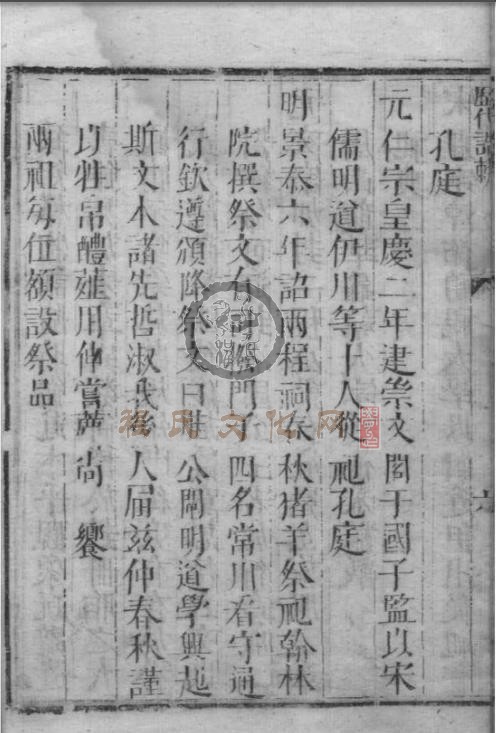 歷代詔
六
孔庭
元仁宗皇慶二年建崇文閣于國子監以宋
儒明道伊川等十人從祀孔庭
明景泰六年詔兩程祠春秋猪羊祭祀翰林
院撰祭文有門子四名常川看守通
行欽遵頒降祭文曰惟 公闡明道學興起
斯文本諸先哲淑我後人屆茲仲春秋謹
以牲帛醴虀用伸嘗薦尚 饗
兩祖每位額設祭品
程氏文化网